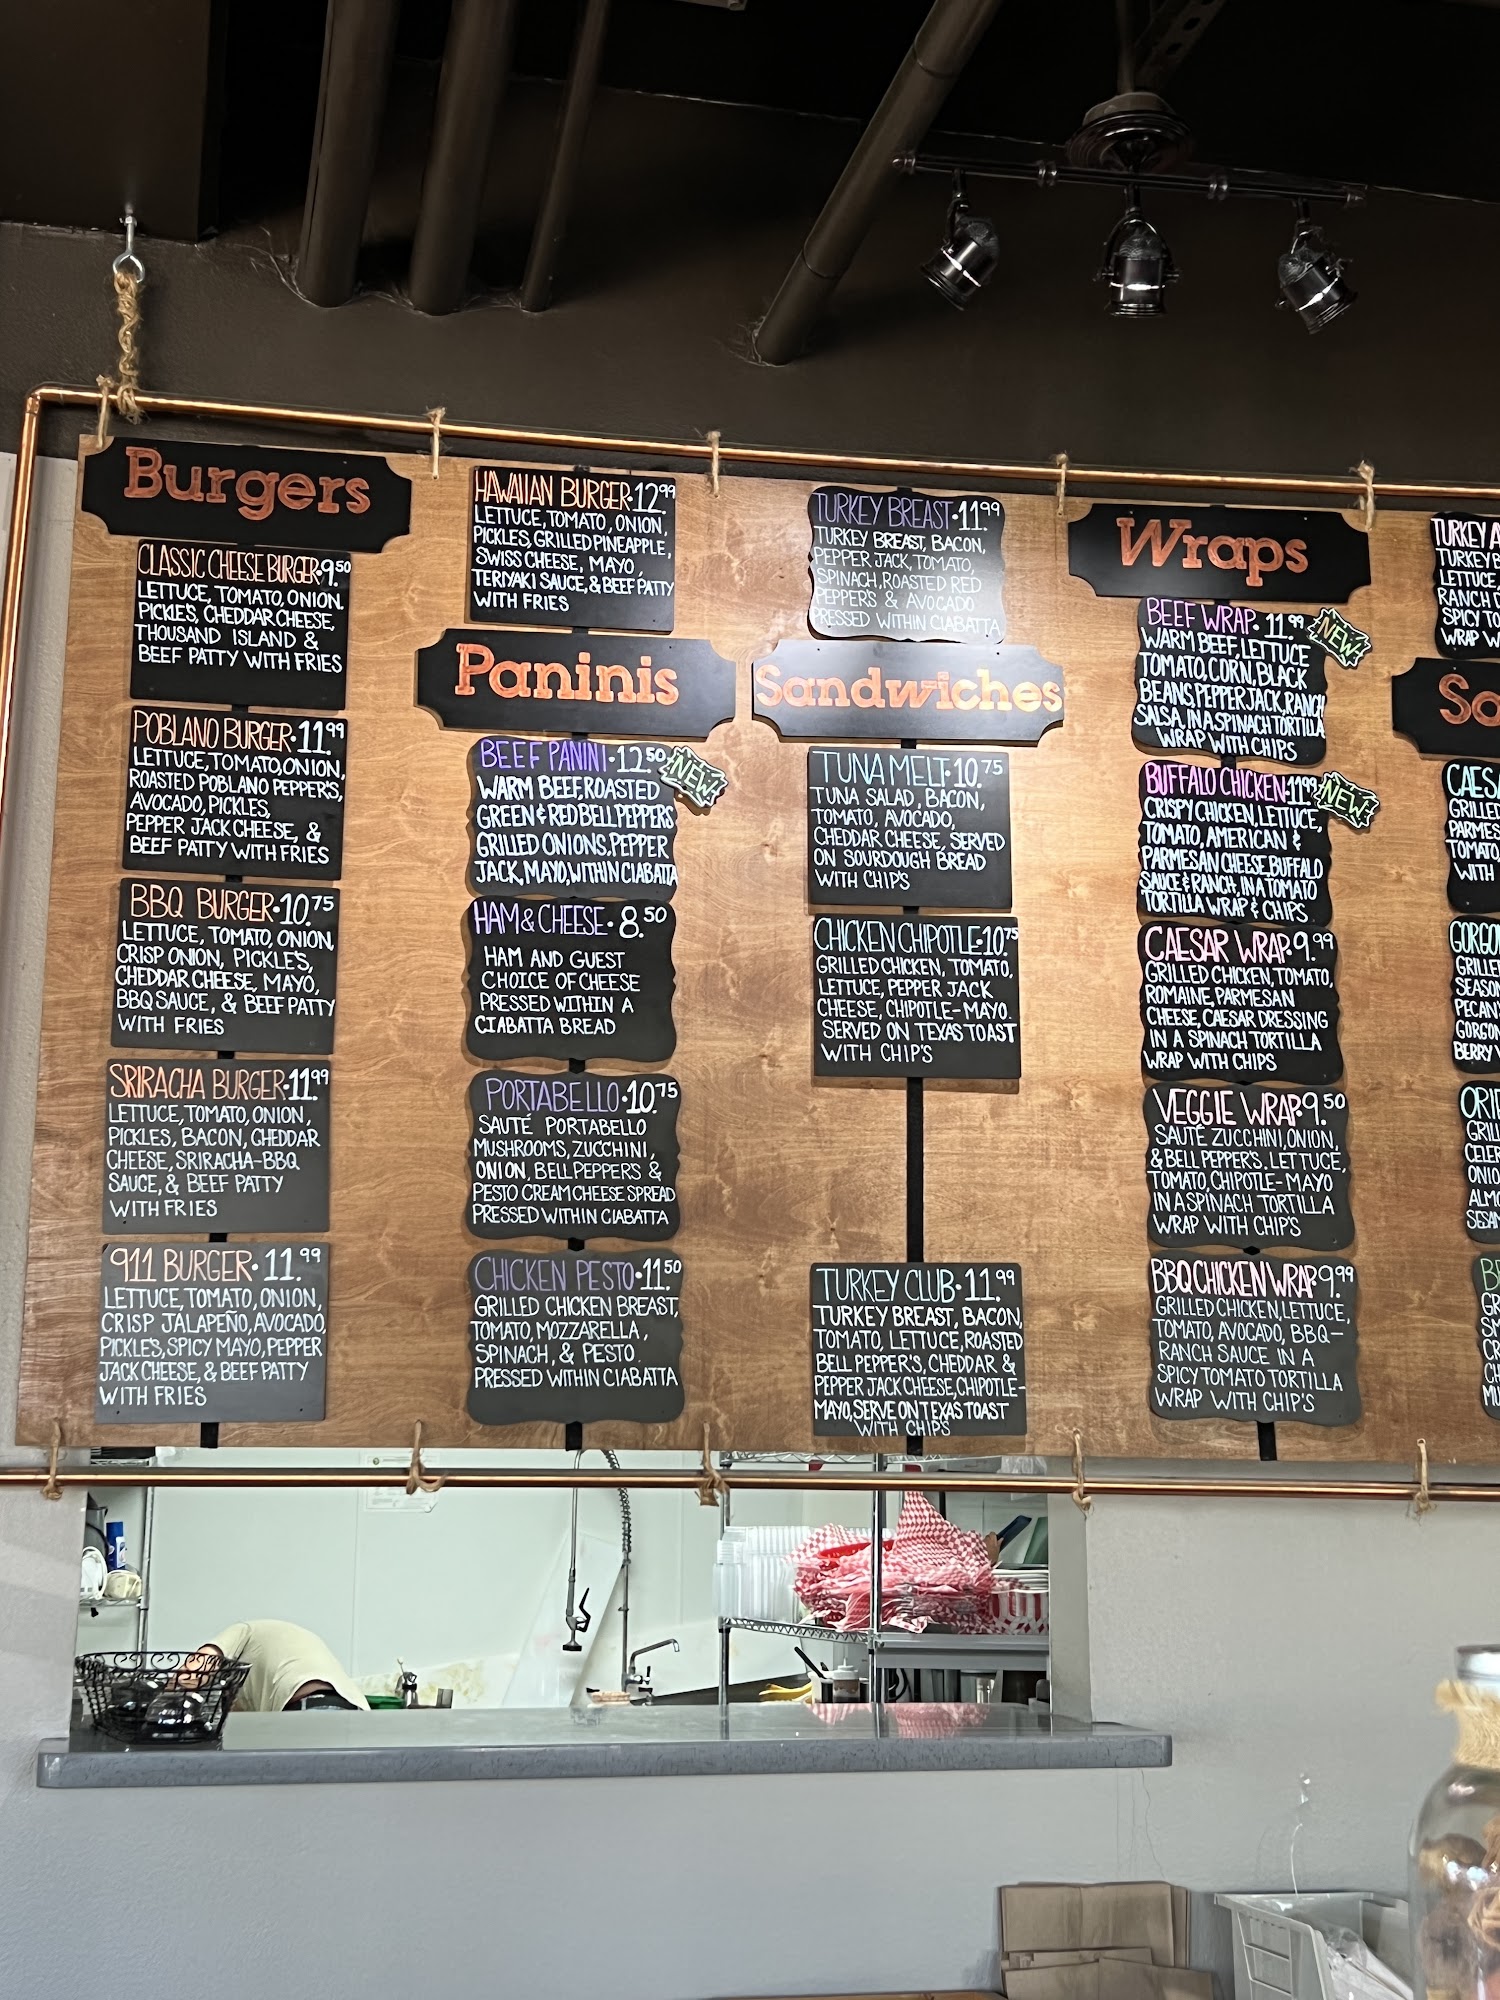 Burgers
CLASSIC CHEESE BURGER•9.50
LETTUCE, TOMATO, ONION.
PICKLE'S, CHEDDAR CHEESE,
THOUSAND ISLAND &
BEEF PATTY WITH FRIES
POBLANO BURGER•11.99
LETTUCE,TOMATO,ONION,
ROASTED POBLANO PEPPER'S,
AVOCADO, PICKLES,
PEPPER JACK CHEESE, &
BEEF PATTY WITH FRIES
BBQ BURGER•10.75
LETTUCE, TOMATO, ONION,
CRISP ONION, PICKLE'S,
CHEDDAR CHEESE, MAYO,
BBQ SAUCE, & BEEF PATTY
WITH FRIES
SRIRACHA BURGER•11.99
LETTUCE,TOMATO,ONION,
PICKLES, BACON, CHEDDAR
CHEESE, SRIRACHA-BBQ
SAUCE, & BEEF PATTY
WITH FRIES
911 BURGER•11.99
LETTUCE,TOMATO,ONION,
CRISP JALAPEÑO, AVOCADO,
PICKLE'S, SPICY MAYO, PEPPER
JACK CHEESE, & BEEF PATTY
WITH FRIES
HAWAIIAN BURGER•12.99
LETTUCE,TOMATO, ONION,
PICKLES, GRILLED PINEAPPLE,
SWISS CHEESE, MAYO,
TERIYAKI SAUCE, & BEEF PATTY
WITH FRIES
Paninis
BEEF PANINI•12.50
NEW
WARM BEEF,ROASTED
GREEN & RED BELL PEPPERS
GRILLED ONIONS. PEPPER
JACK, MAYO, WITHIN CIABATTA
HAM & CHEESE•8.50
HAM AND GUEST
CHOICE OF CHEESE
PRESSED WITHIN A
CIABATTA BREAD
PORTABELLO•10.75
SAUTÉ PORTABELLO
MUSHROOMS, ZUCCHINI,
ONION, BELL PEPPER'S &
PESTO CREAM CHEESE SPREAD
PRESSED WITHIN CIABATTA
CHICKEN PESTO•11.50
GRILLED CHICKEN BREAST,
TOMATO, MOZZARELLA,
SPINACH, & PESTO.
PRESSED WITHIN CIABATTA
TURKEY BREAST•11.99
TURKEY BREAST, BACON,
PEPPER JACK, TOMATO,
SPINACH, ROASTED RED
PEPPER'S & AVOCADO
PRESSED WITHIN CIABATTA
Sandwiches
TUNA MELT•10.75
TUNA SALAD, BACON,
TOMATO, AVOCADO,
CHEDDAR CHEESE, SERVED
ON SOURDOUGH BREAD
WITH CHIP'S
CHICKEN CHIPOTLE•10.75
GRILLED CHICKEN, TOMATO,
LETTUCE, PEPPER JACK
CHEESE, CHIPOTLE-MAYO.
SERVED ON TEXAS TOAST
WITH CHIP'S
TURKEY CLUB•11.99
TURKEY BREAST, BACON,
TOMATO, LETTUCE, ROASTED
BELL PEPPER'S, CHEDDAR &
PEPPER JACK CHEESE, CHIPOTLE-
MAYO, SERVE ON TEXAS TOAST
WITH CHIPS
Wraps
BEEF WRAP•11.99
NEW
WARM BEEF, LETTUCE
TOMATO, CORN, BLACK
BEANS, PEPPER JACK, RANCH
SALSA, IN A SPINACH TORTILLA
WRAP WITH CHIPS
BUFFALO CHICKEN•11.99
NEW
CRISPY CHICKEN, LETTUCE,
TOMATO, AMERICAN &
PARMESAN CHEESE, BUFFALO
SAUCE & RANCH, IN A TOMATO
TORTILLA WRAP & CHIPS
CAESAR WRAP•9.99
GRILLED CHICKEN, TOMATO,
ROMAINE, PARMESAN
CHEESE, CAESAR DRESSING
IN A SPINACH TORTILLA
WRAP WITH CHIPS
VEGGIE WRAP•9.50
SAUTÉ ZUCCHINI, ONION,
& BELL PEPPER'S. LETTUCE,
TOMATO, CHIPOTLE-MAYO
IN A SPINACH TORTILLA
WRAP WITH CHIP'S
BBQ CHICKEN WRAP•9.99
GRILLED CHICKEN, LETTUCE,
TOMATO, AVOCADO, BBQ-
RANCH SAUCE IN A
SPICY TOMATO TORTILLA
WRAP WITH CHIP'S
TURKEY
TURKEY
LETTUCE,
RANCH
SPICY
WRAP
GRILLED
TOMATO,
WITH